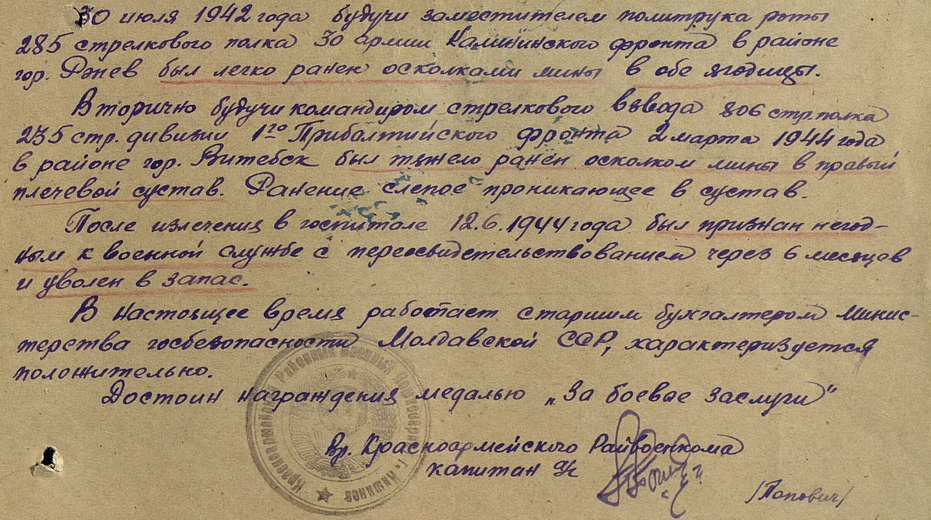 30 июля 1942 года будучи заместителем политрука роты
285 стрелкового полка 30 армии Калининского фронта в районе
гор. Ржев был легко ранен осколками мины в обе ягодицы.
Вторично будучи командиром стрелкового взвода 806 стр. полка
235 стр. дивизии 1го Прибалтийского фронта 2 марта 1944 года
в районе гор. Витебск был тяжело ранен осколком мины в правый
плечевой сустав. Ранение слепое проникающее в сустав.
После излечения в госпитале 12.6.1944 года был признан негод-
ным к военной службе с пересвидетельствованием через 6 месяцев
и уволен в запас.
В настоящее время работает старшим бухгалтером Минис-
терства госбезопасности Молдавской ССР, характеризуется
положительно.
Достоин награждения медалью „За боевые заслуги"
Вр. Красноармейского Райвоенкома
капитан а/с
/Попович/
Красноармейский районный военный комиссариат г. Кишинев